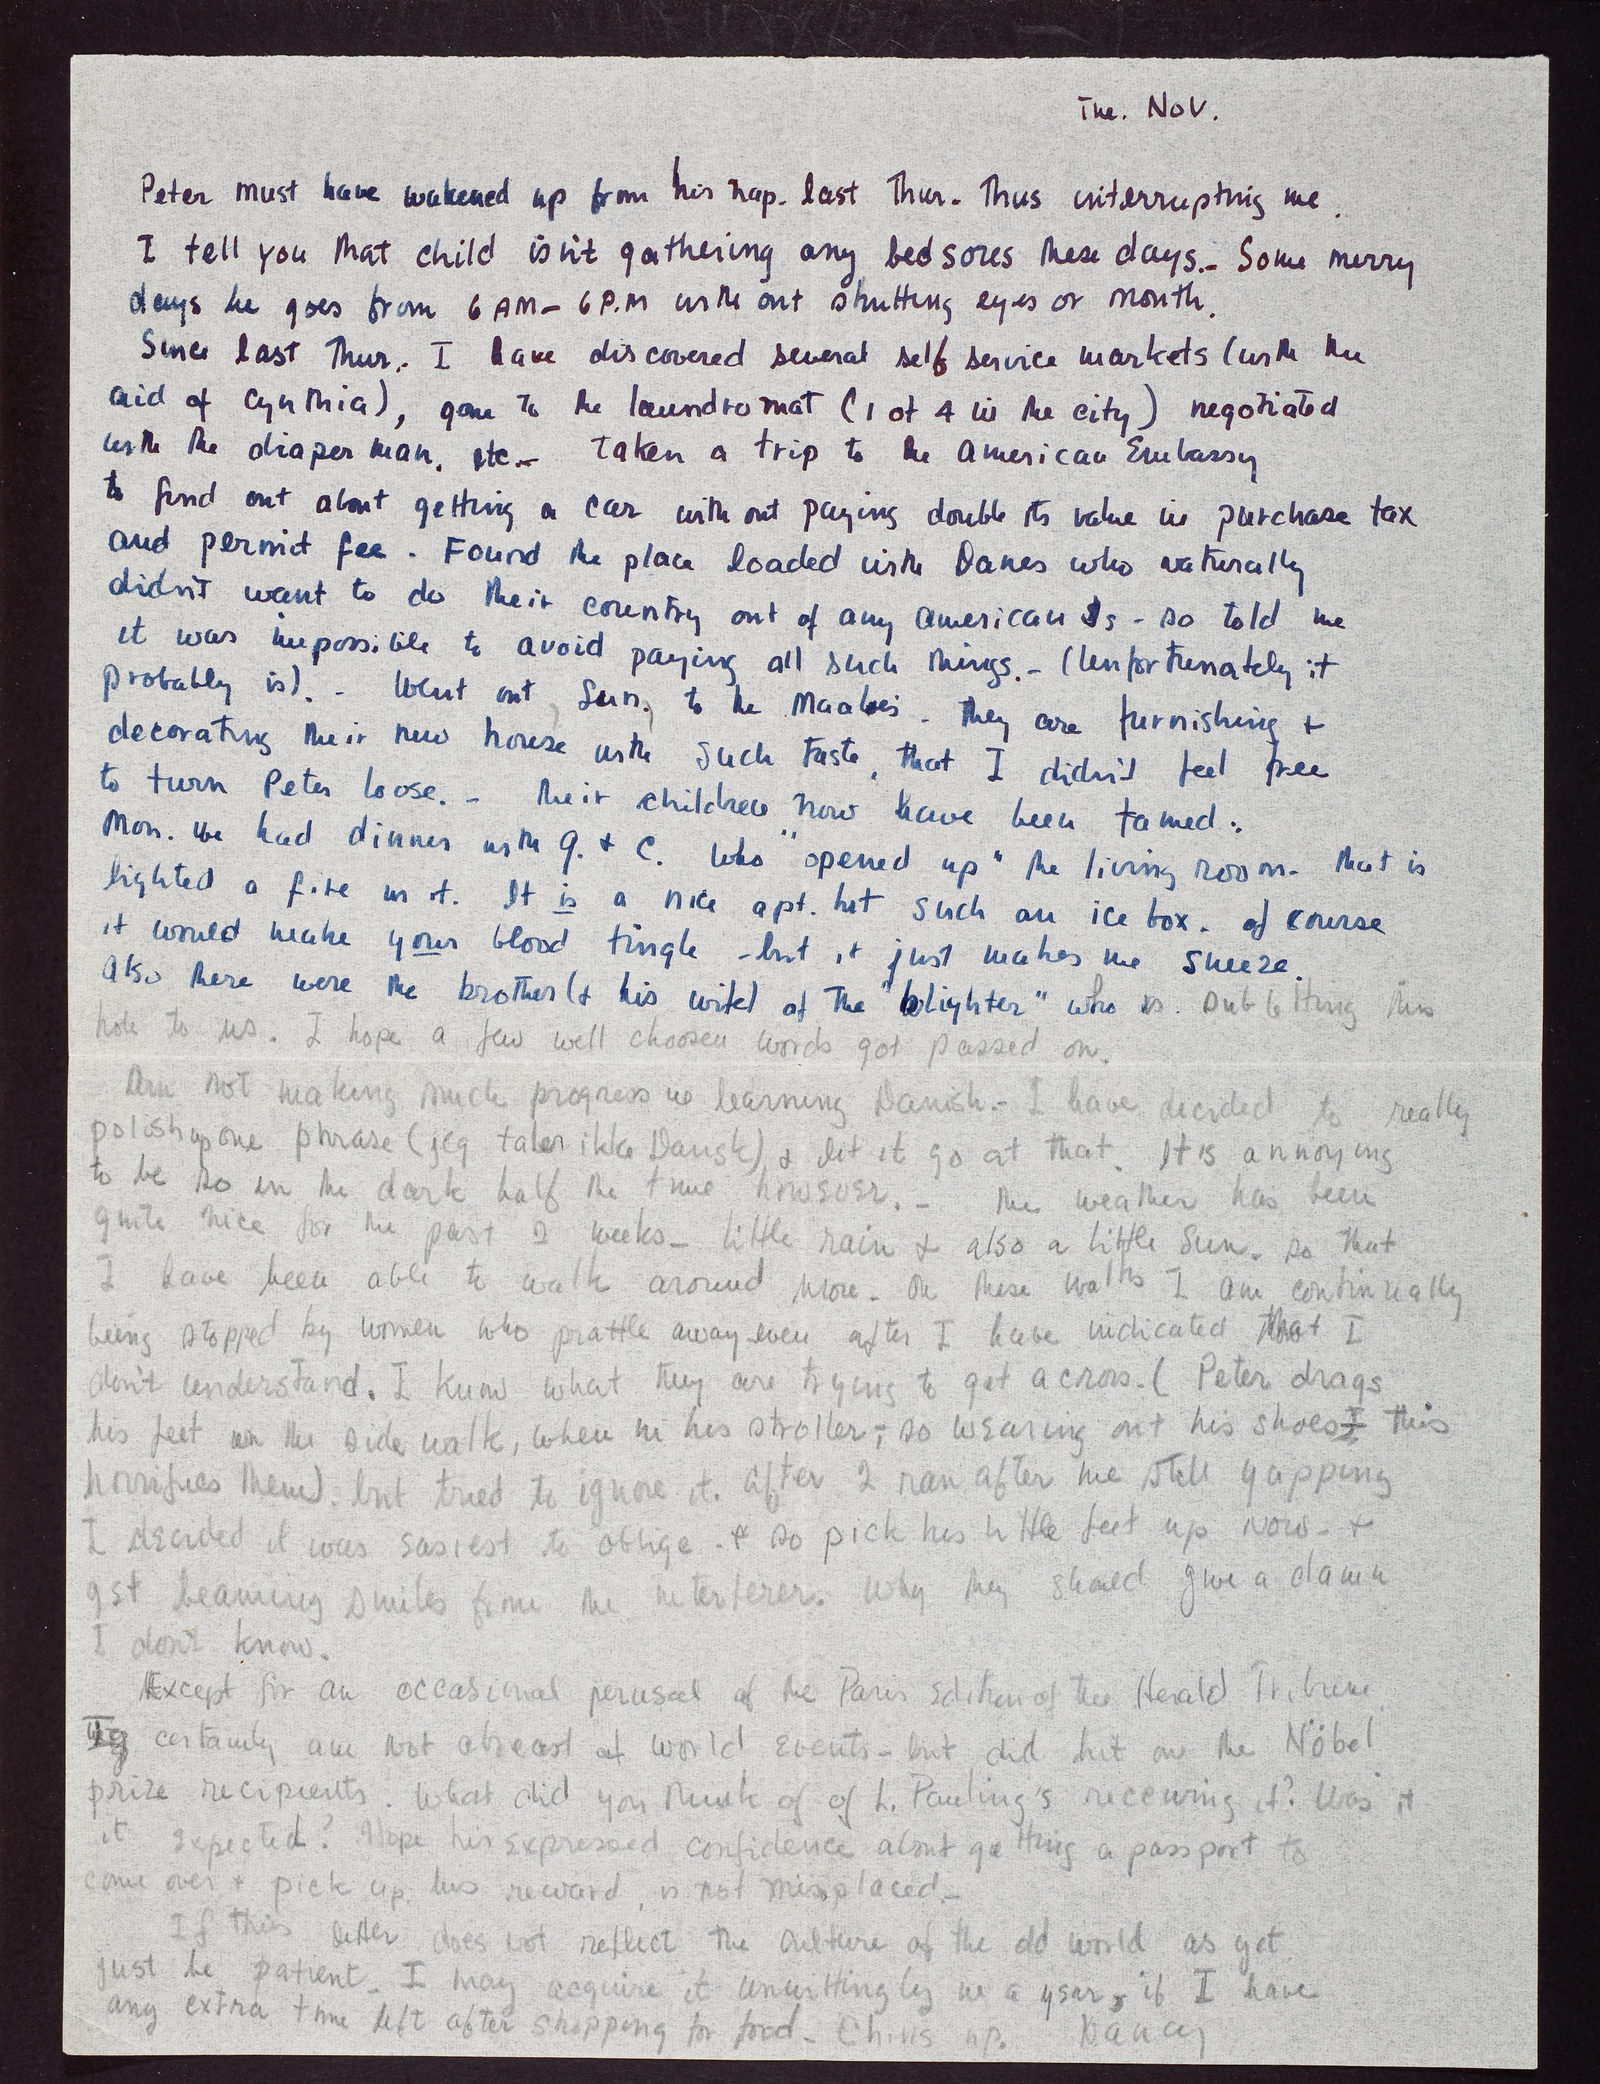 Tue. Nov.
Peter must have wakened up from his nap. last Thur. thus interrupting me.
I tell you that child isn't gathering any bedsores these days.- Some merry
days he goes from 6 AM - 6 P.M without shutting eyes or mouth.
Since last Thur. I have discovered several self service markets (with the
aid of Cynthia), gone to the laundromat (1 of 4 in the city) negotiated
with the diaper man, etc.- Taken a trip to the American Embassy
to find out about getting a car without paying double its value in purchase tax
and permit fee. Found the place loaded with Danes who naturally
didn't want to do their country out of any american $s - so told me
it was impossible to avoid paying all such things.- (Unfortunately it
probably is). - Went out, Sun, to the Maaløes - they are furnishing +
decorating their new house with such taste, that I didn't feel free
to turn Peter loose. - their children now have been tamed.
Mon. we had dinner with G. + C. who "opened up" the living room - that is
lighted a fire in it. It is a nice apt. but such an ice box. of course
it would make your blood tingle - but it just makes me sneeze.
also there were the brother (+ his wife) of the "blighter" who is subletting this
hole to us. I hope a few well choosen words got passed on.
Am not making much progress in learning Danish.- I have decided to really
polish up one phrase (jeg taler ikke Dansk) + let it go at that. It is annoying
to be so in the dark half the time however. - The weather has been
quite nice for the past 2 weeks - little rain + also a little sun. so that
I have been able to walk around more. On these walks I am continually
being stopped by women who prattle away even after I have indicated that I
don't understand. I know what they are trying to get across. (Peter drags
his feet on the side walk, when in his stroller; so wearing out his shoes this
horrifies them). but tried to ignore it. after 2 ran after me still yapping
I decided it was easiest to oblige. + so pick his little feet up now - +
get beaming smiles from the interferer. Why they should give a damn
I don't know.
Except for an occasional perusal of the Paris edition of the Herald Tribune
I certainly am not abreast of world events - but did hit on the Nöbel
prize recipients. What did you think of of L. Pauling's receiving it? Was it
it expected? Hope his expressed confidence about getting a passport to
come over + pick up his reward, is not misplaced.-
If this letter does not reflect the culture of the old world as yet
just be patient. I may acquire it unwittingly in a year, if I have
any extra time left after shopping for food - Chins up. Nancy